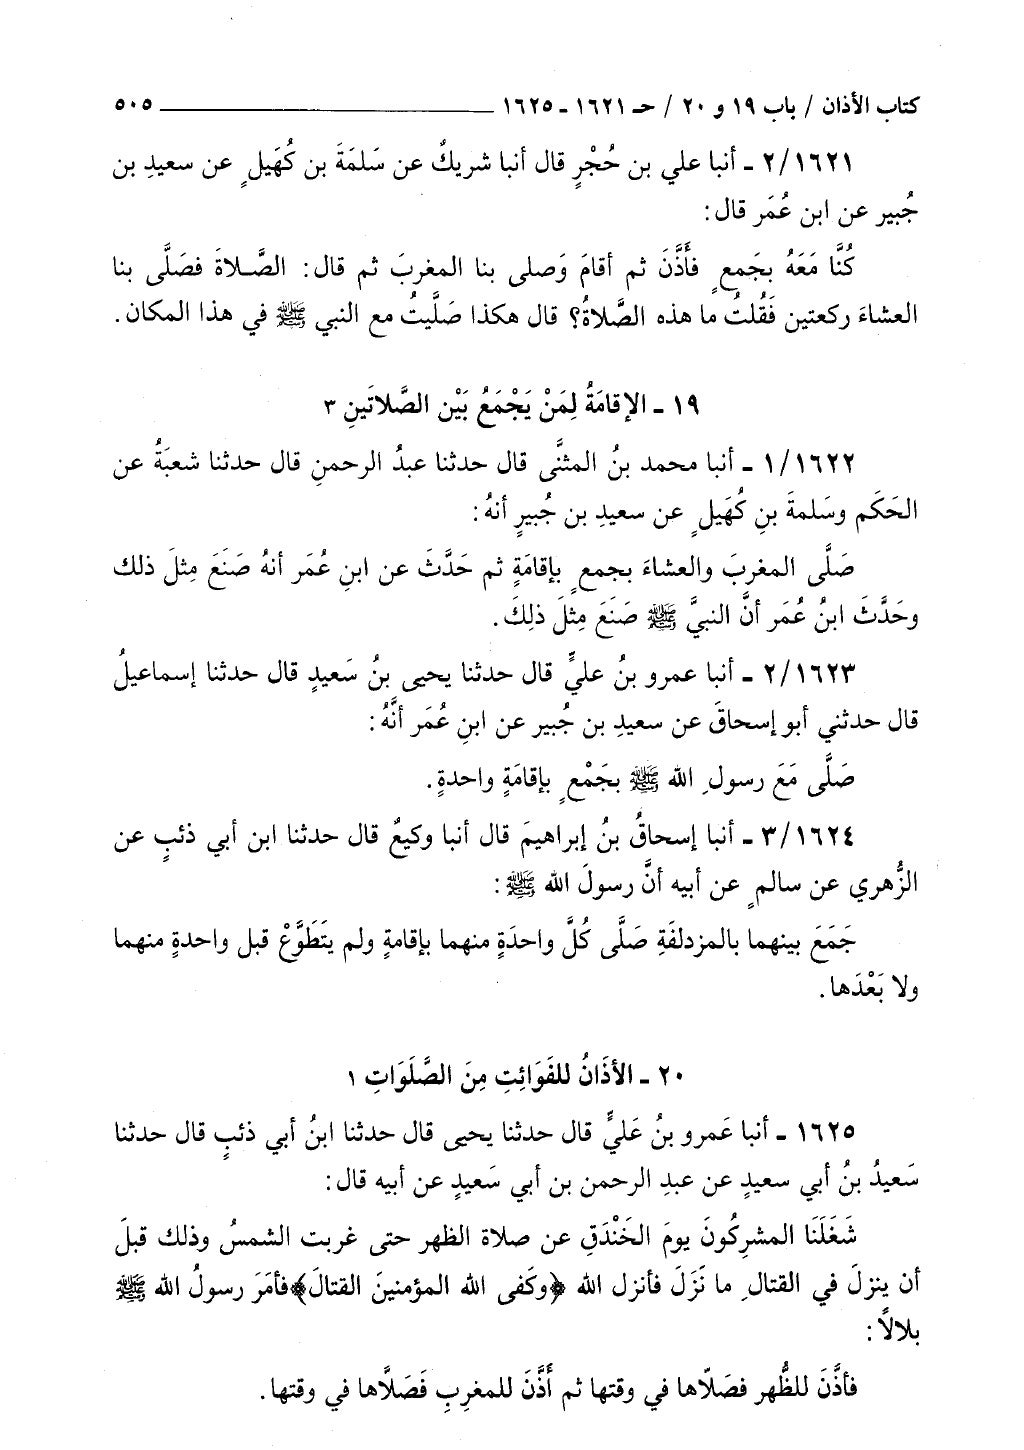 كتاب الأذان / باب ١٩ و ٢٠ / حـ ١٦٢١ ـ ١٦٢٥ ٥٠٥
٢/١٦٢١ ـ أنبا علي بن حُجْرٍ قال أنبا شريكٌ عن سَلمَةَ بن كُهَيلٍ عن سعيدِ بن
جُبير عن ابن عُمَر قال:
كُنَّا مَعَهُ بجَمعٍ فأَذَّنَ ثم أقامَ وَصلى بنا المغربَ ثم قال: الصَّلاةَ فصَلَّى بنا
العشاءَ ركعتين فَقُلتُ ما هذه الصَّلاةُ؟ قال هكذا صَلَّيتُ مع النبي ﷺ في هذا المكان.
١٩ ـ الإقامَةُ لِمَنْ يَجْمَعُ بَيْن الصَّلاتَينِ ٣
١/١٦٢٢ ـ أنبا محمد بنُ المثنَّى قال حدثنا عبدُ الرحمنِ قال حدثنا شعبَةُ عن
الحَكَم وسَلمةَ بنِ كُهَيلٍ عن سعيدِ بن جُبيرٍ أنهُ:
صَلَّى المغربَ والعشاءَ بجمعٍ بإقامَةٍ ثم حَدَّثَ عن ابنِ عُمَر أنهُ صَنَعَ مِثلَ ذلك
وحَدَّثَ ابنُ عُمَر أنَّ النبيَّ ﷺ صَنَعَ مِثلَ ذلِكَ.
٢/١٦٢٣ ـ أنبا عمرو بنُ عليٍّ قال حدثنا يحيى بنُ سَعيدٍ قال حدثنا إسماعيلُ
قال حدثني أبو إسحاقَ عن سعيدِ بن جُبير عن ابنِ عُمَر أنَّهُ:
صَلَّى مَعَ رسولِ الله ﷺ بجَمْعٍ بإقامَةٍ واحدةٍ.
٣/١٦٢٤ ـ أنبا إسحاقُ بنُ إبراهيمَ قال أنبا وكيعٌ قال حدثنا ابن أبي ذئبٍ عن
الزُّهري عن سالمٍ عن أبيه أنَّ رسولَ الله ﷺ:
جَمَعَ بينهما بالمزدلفَةِ صَلَّى كُلَّ واحدَةٍ منهما بإقامةٍ ولم يتَطَوَّعْ قبل واحدةٍ منهما
ولا بَعْدَها.
٢٠ ـ الأذَانُ للفَوَائِتِ مِنَ الصَّلَوَاتِ ١
١٦٢٥ ـ أنبا عَمرو بنُ عَليٍّ قال حدثنا يحيى قال حدثنا ابنُ أبي ذئبٍ قال حدثنا
سَعيدُ بنُ أبي سعيدٍ عن عبدِ الرحمن بن أبي سَعيدٍ عن أبيه قال:
شَغَلَنَا المشرِكُونَ يومَ الخَنْدَقِ عن صلاة الظهر حتى غربت الشمسُ وذلك قبلَ
أن ينزلَ في القتالِ ما نَزَلَ فأنزل الله ﴿وكَفى الله المؤمنينَ القتالَ﴾فأمَرَ رسولُ الله ﷺ
بلالًا:
فأذَّنَ للظُّهر فصَلّاها في وقتها ثم أَذَّنَ للمغربِ فَصَلَّاها في وقتها.